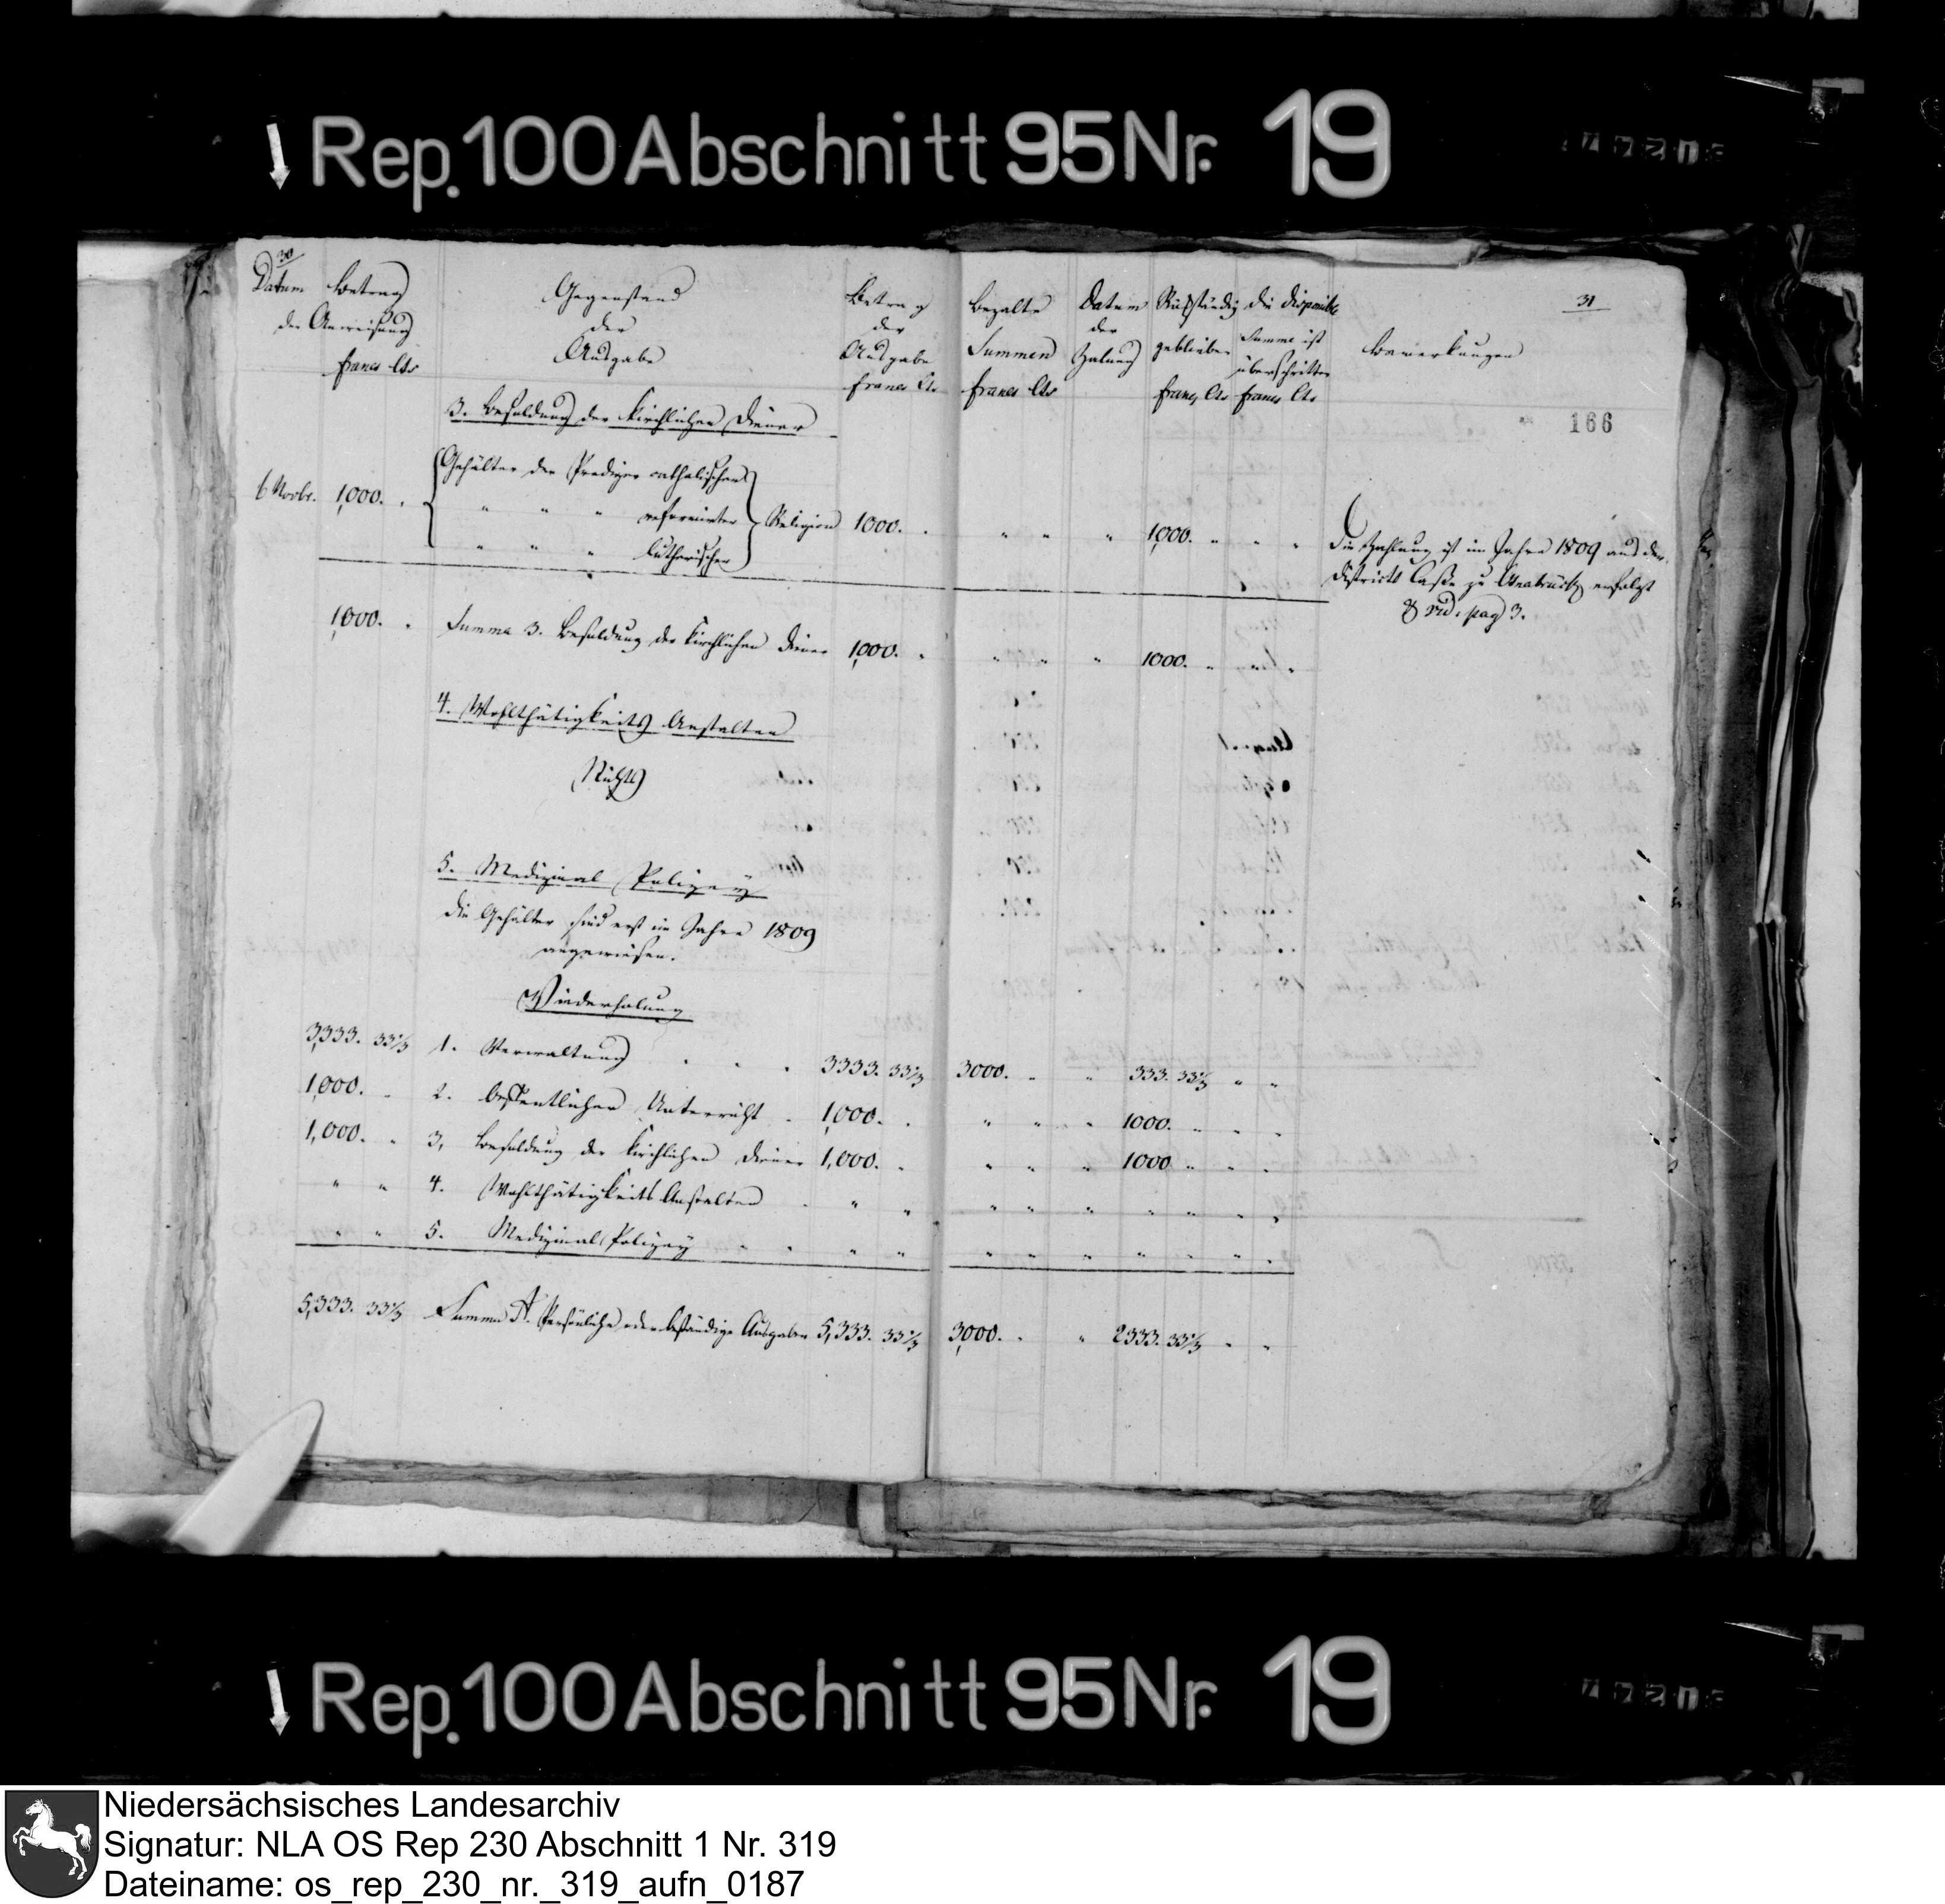 Rep. 100 Abschnitt 95 Nr. 19
30
31
166
Datum Betrag
der Anweisung
francs Cts
Gegenstand
der
Ausgabe
Betrag
der
Ausgabe
francs Cts
Bezalte
Summen
francs Cts
Datum
der
Zalung
Rückständig
geblieben
francs Cts
die disponible
Summe ist
überschritten
francs Cts
Bemerkungen
3. Besoldung der kirchlichen Diener
6 Novbr. 1,000. " Gehälter der Prediger catholischer
" " " reformirter Religion 1000. " " " " 1,000. " " "
" " " lutherischer
Die Zahlung ist im Jahre 1809 aus der
Districts Casse zu Osnabrück erfolgt
vid. pag 3.
1,000. " Summa 3. Besoldung der kirchlichen Diener 1,000. " " " " 1000. " " "
4. Wohlthätigkeits Anstalten
Nichts
5. Medizinal Polizey
die Gehälter sind erst im Jahre 1809
angewiesen.
Wiederholung
3,333. 33 1/3 1. Verwaltung " " " 3333. 33 1/3 3000. " " 333. 33 1/3 " "
1,000. " 2. Oeffentlicher Unterricht " 1,000. " " " " 1000. " " "
1,000. " 3, Besoldung der kirchlichen Diener 1,000. " " " " 1000 " " "
" " 4. Wohlthätigkeits Anstalten " " " " " " " " " "
" " 5. Medizinal Polizey " " " " " " " " " " "
5,333. 33 1/3 Summa A. Persönliche oder beständige Ausgaben 5,333. 33 1/3 3,000. " " 2333. 33 1/3 " "
Rep. 100 Abschnitt 95 Nr. 19
Niedersächsisches Landesarchiv
Signatur: NLA OS Rep 230 Abschnitt 1 Nr. 319
Dateiname: os_rep_230_nr._319_aufn_0187